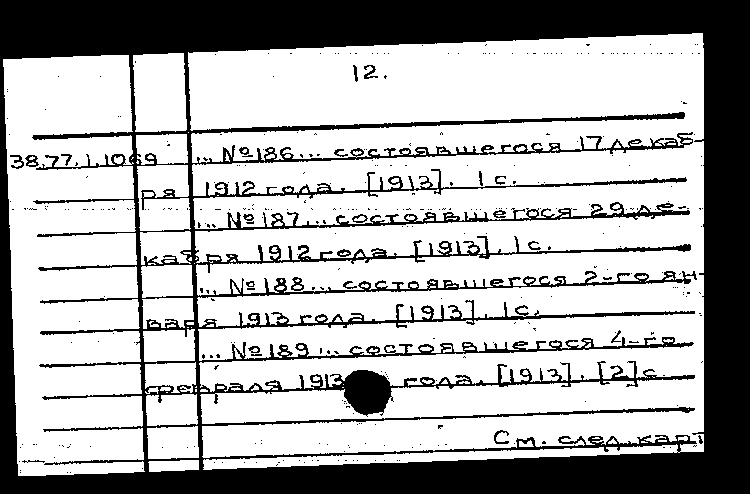 12.
38.77.1.1069 ... №186... состоявшегося 17 декаб-
ря 1912 года. [1913]. 1 с.
... №187... состоявшегося 29 де-
кабря 1912 года. [1913]. 1 с.
... №188... состоявшегося 2-го ян-
варя 1913 года. [1913]. 1 с.
... №189... состоявшегося 4-го
февраля 1913 года. [1913]. [2] с.
См. след. карт